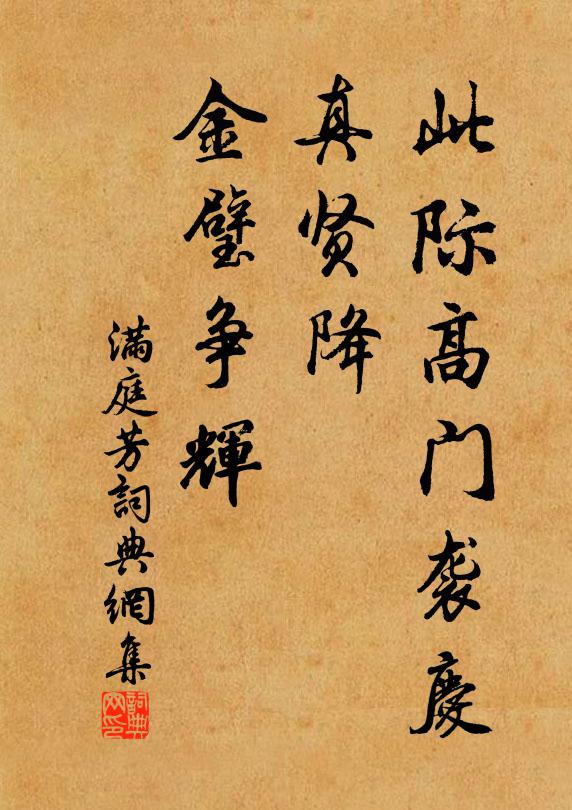 此际高门袭慶
真贤降
金璧争輝
满庭芳詞典網集
詞典网印